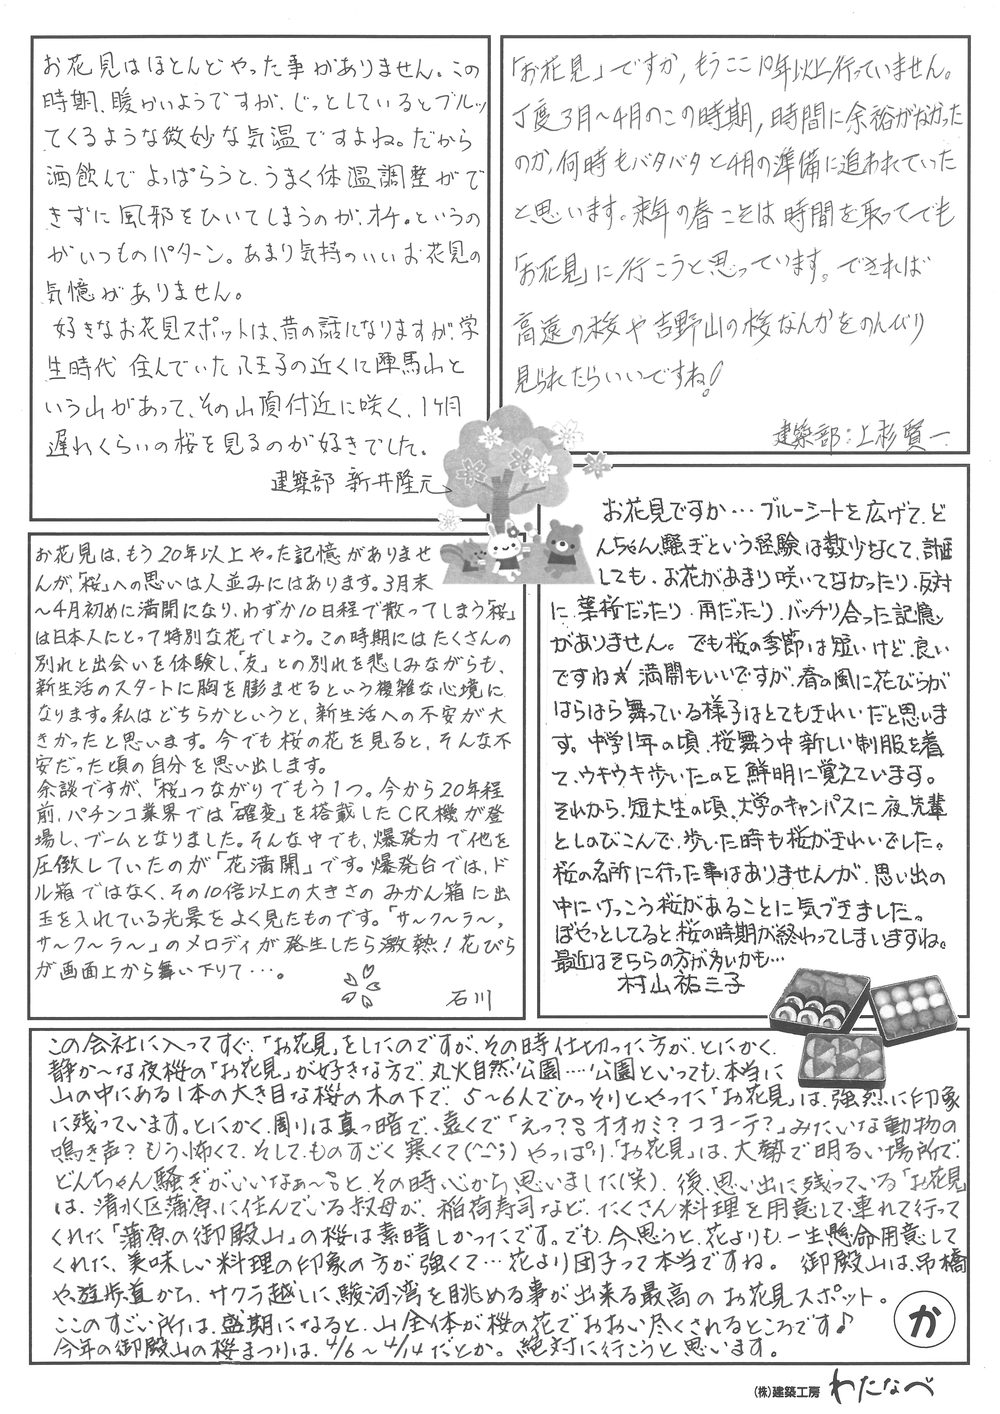 お花見はほとんどやった事がありません。この
時期、暖かいようですが、じっとしているとブルッ
てくるような微妙な気温ですよね。だから
酒飲んでよっぱらうと、うまく体温調整がで
きずに風邪をひいてしまうのが、オチ。というの
がいつものパターン。あまり気持のいいお花見の
気憶がありません。
好きなお花見スポットは、昔の話になりますが、学
生時代 住んでいた八王子の近くに陣馬山と
いう山があって、その山頂付近に咲く、1ヶ月
遅れくらいの桜を見るのが好きでした。
建築部 新井隆元
「お花見」ですか、もうここ10年以上行っていません。
丁度3月～4月のこの時期、時間に余裕がなかった
のか、何時もバタバタと4月の準備に追われていた
と思います。来年の春ことは時間を取ってでも
「お花見」に行こうと思っています。できれば
高遠の桜や吉野山の桜なんかをのんびり
見られたらいいですね!
建築部:上杉賢一
お花見は、もう20年以上やった記憶がありませ
んが、「桜」への思いは人並みにはあります。3月末
～4月初めに満開になり、わずか10日程で散ってしまう「桜」
は日本人にとって特別な花でしょう。この時期にはたくさんの
別れと出会いを体験し、「友」との別れを悲しみながらも、
新生活のスタートに胸を膨ませるという複雑な心境に
なります。私はどちらかというと、新生活への不安が大
きかったと思います。今でも桜の花を見ると、そんな不
安だった頃の自分を思い出します。
余談ですが、「桜」つながりでもう1つ。今から20年程
前、パチンコ業界では「確変」を搭載したCR機が登
場し、ブームとなりました。そんな中でも、爆発力で他を
圧倒していたのが「花満開」です。爆発台では、ド
ル箱ではなく、その10倍以上の大きさのみかん箱に出
玉を入れている光景をよく見たものです。「サ～ク～ラ～、
サ～ク～ラ～」のメロディが発生したら激熱!花びら
が画面上から舞い下りて・・・。
石川
お花見ですか… ブルーシートを広げて、ど
んちゃん騒ぎという経験は数少なくて、計画
しても、お花があまり咲いてなかったり、反対
に、葉桜だったり、雨だったり、バッチリ合った記憶
がありません。でも桜の季節は短いけど、良い
ですね☆満開もいいですが、春の風に花びらが
はらはら舞っている様子はとてもきれいだと思いま
す。中学1年の頃、桜舞う中新しい制服を着
て、ウキウキ歩いたのを鮮明に覚えています。
それから、短大生の頃、大学のキャンパスに夜、先輩
としのびこんで、歩いた時も桜がきれいでした。
桜の名所に行った事はありませんが、思い出の
中にけっこう桜があることに気づきました。
ぼやっとしてると桜の時期が終わってしまいますね。
最近はそちらの方が多いかも…
村山祐三子
この会社に入ってすぐ、「お花見」をしたのですが、その時仕切った方が、とにかく
静か～な夜桜の「お花見」が好きな方で、丸火自然公園…公園といっても、本当に
山の中にある1本の大き目な桜の木の下で、5～6人でひっそりとやった「お花見」は、強烈に印象
に残っています。とにかく、周りは真っ暗で、遠くで「えっ?? オオカミ?コヨーテ?」みたいな動物の
鳴き声?もう怖くて、そして、ものすごく寒くて(^^;)やっぱり「お花見」は、大勢で明るい場所で、
どんちゃん騒ぎがいいなぁ～と、その時心から思いました(笑)。後、思い出に残っている「お花見」
は、清水区蒲原に住んでいる叔母が、稲荷寿司など、たくさん料理を用意して、連れて行って
くれた「蒲原の御殿山」の桜は素晴しかったです。でも、今思うと、花よりも、一生懸命用意して
くれた、美味しい料理の印象の方が強くて…花より団子って本当ですね。 御殿山は、吊橋
や遊歩道から、サクラ越しに、駿河湾を眺める事が出来る最高のお花見スポット。
ここのすごい所は、盛期になると、山全体が桜の花でおおい尽くされるところです♪
今年の御殿山の桜まつりは、4/6～4/14だとか。絶対に行こうと思います。
か
(株)建築工房 わたなべ